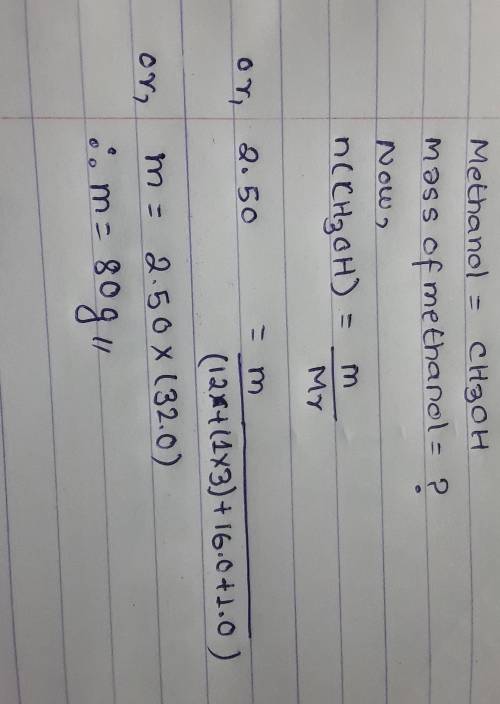 Methanol = CH3OH
mass of methanol = ?
Now,
n(CH3OH) = m/Mr
or, 2.50 = m/(12+(1×3)+16.0+1.0)
or, m = 2.50 × (32.0)
∴ m = 80g //